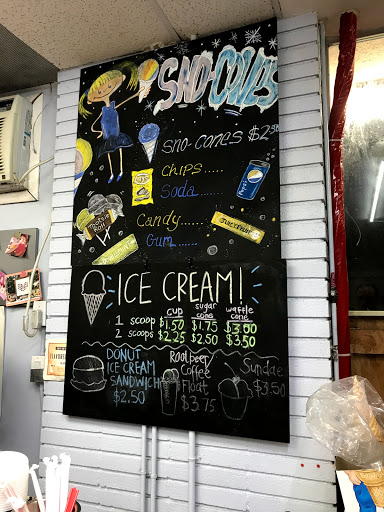 SNO-CONES
sno-cones $2.50
Chips.....
Soda.....
Pepsi
Candy.....
Gum.....
ICE CREAM!
cup sugar cone waffle cone
1 scoop $1.50 $1.75 $3.00
2 scoops $2.25 $2.50 $3.50
DONUT
ICE CREAM
SANDWICH
$2.50
Rootbeer
Coffee
Float
$3.75
Sundae
$3.50